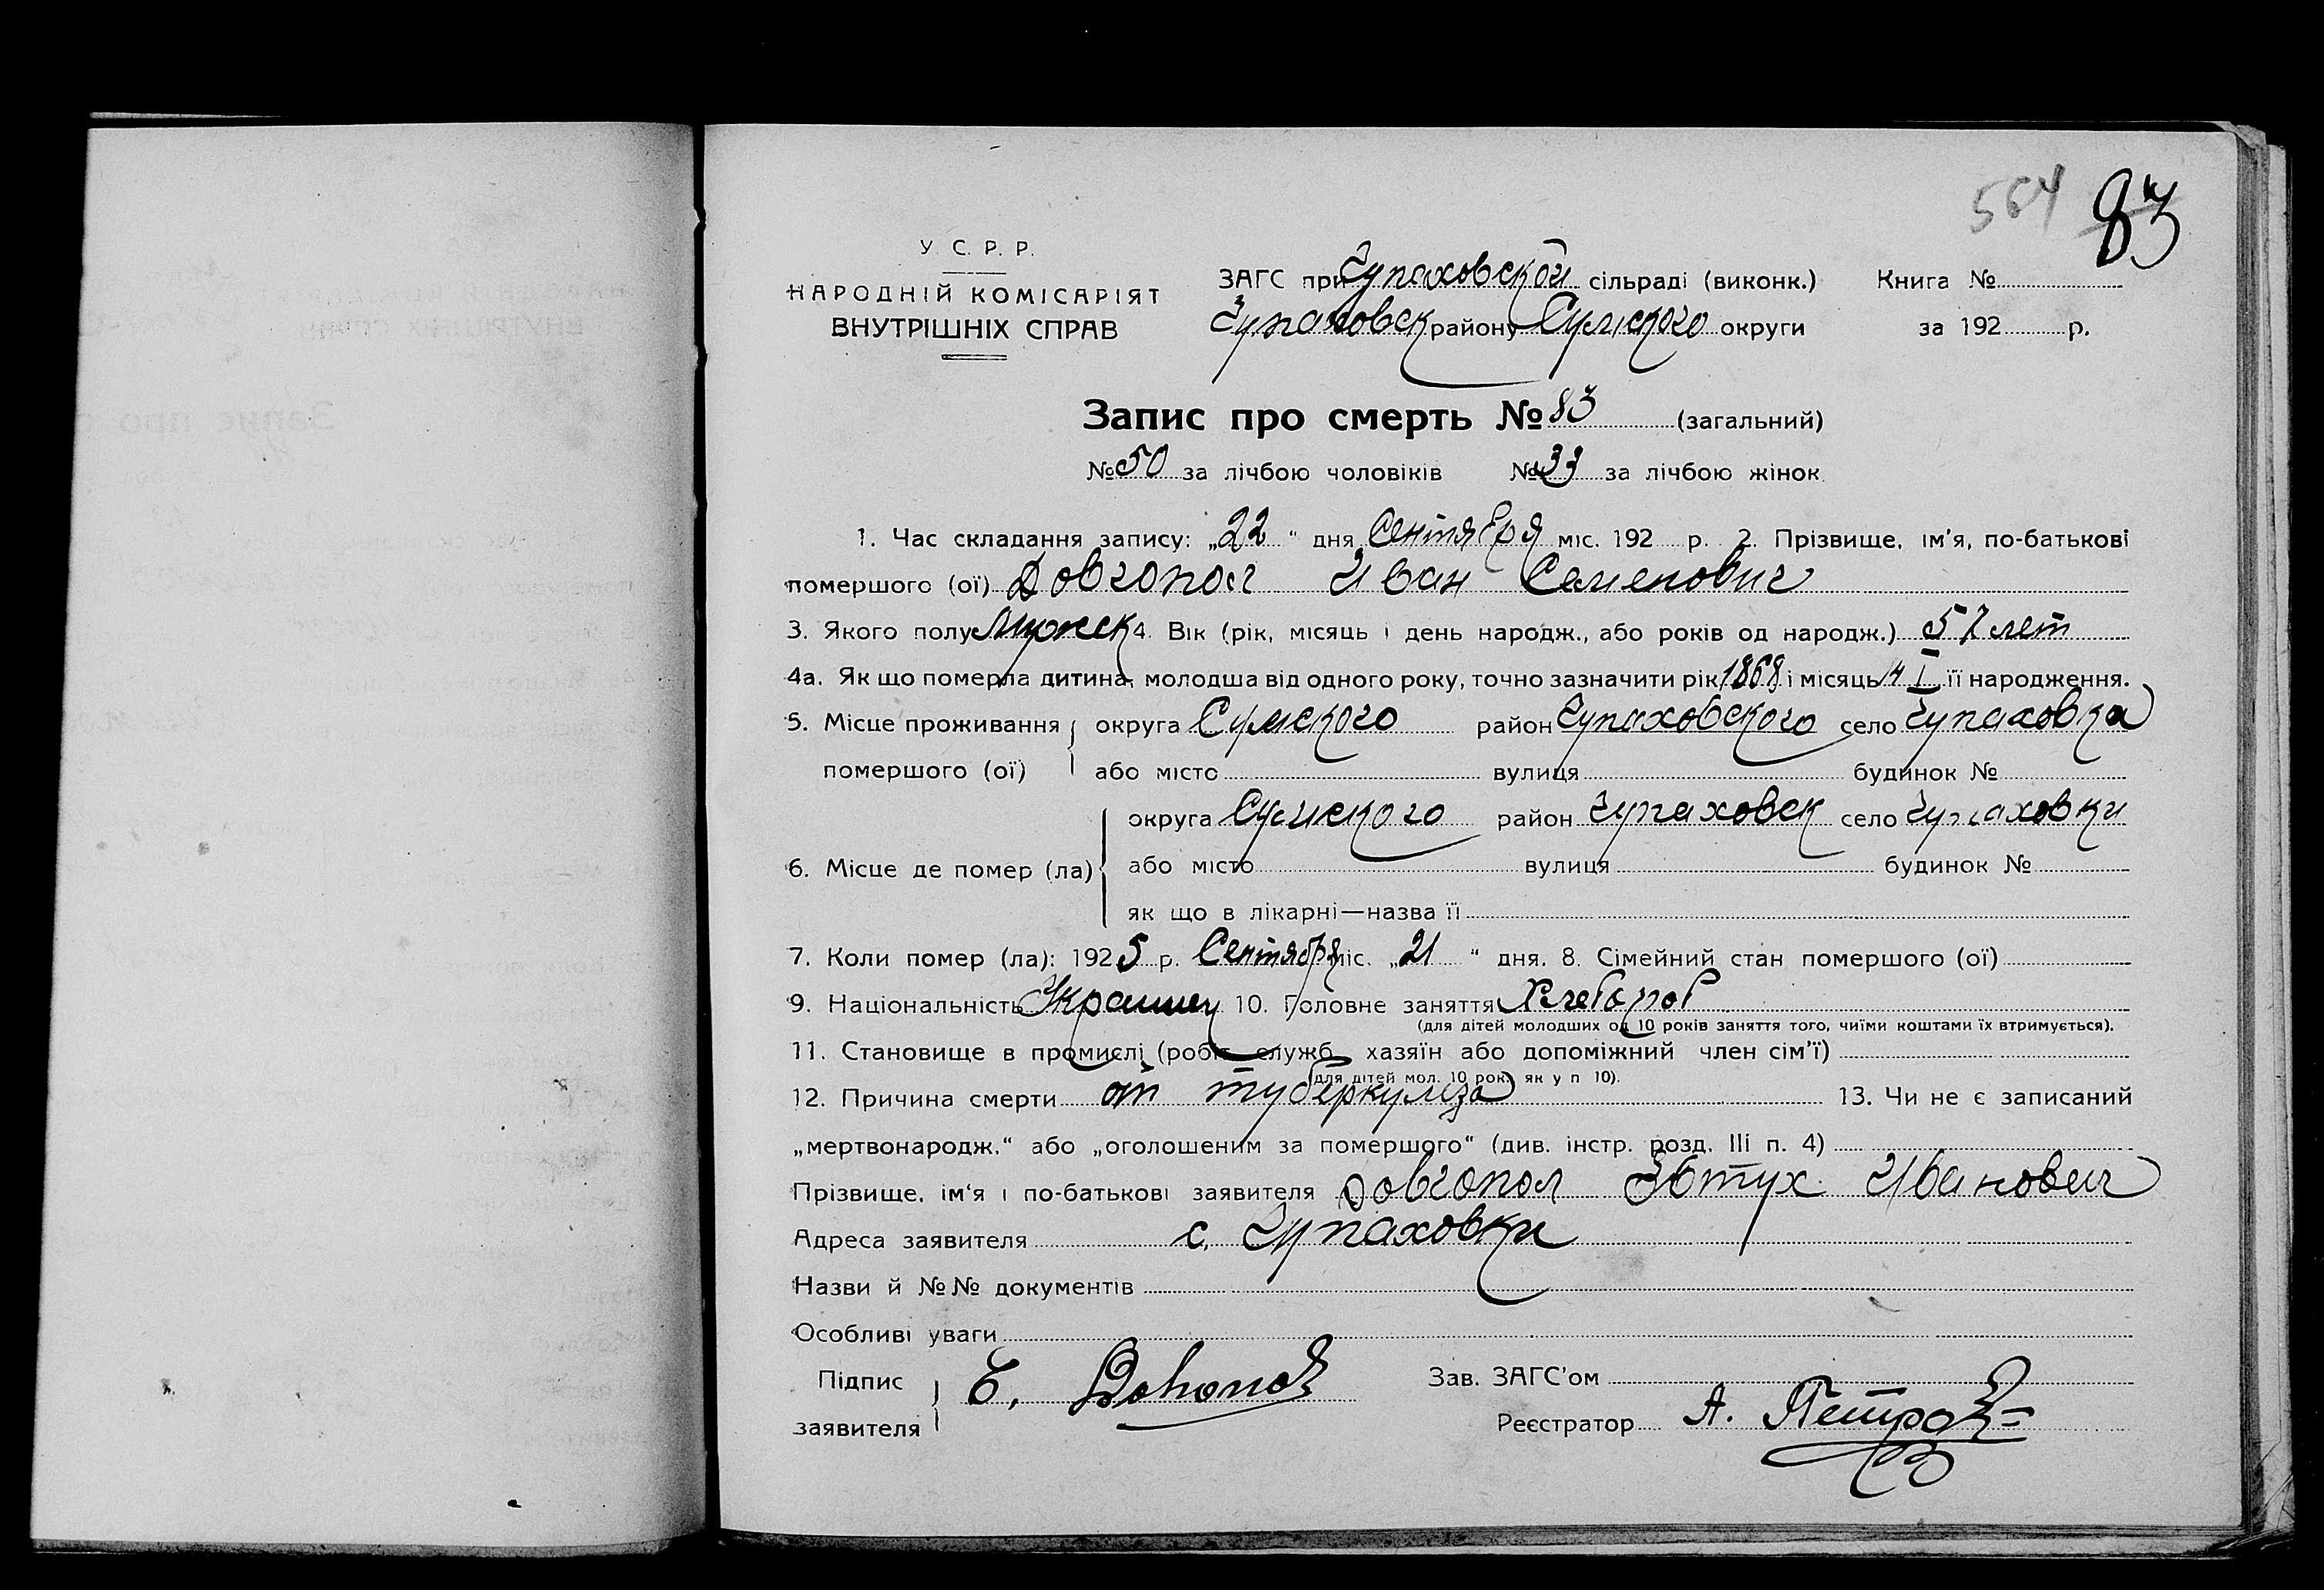 564 83
У. С. Р. Р.
НАРОДНІЙ КОМІСАРІЯТ
ВНУТРІШНІХ СПРАВ
ЗАГС при Чупаховской сільраді (виконк.) Книга №
Чупаховск району Сумского округи за 192 р.
Запис про смерть № 83 (загальний)
№ 50 за лічбою чоловіків № 33 за лічбою жінок
1. Час складання запису: „22“ дня Сентября міс. 192 р. 2. Прізвище, ім'я, по-батькові
помершого (ої) Довгопол Иван Семенович
3. Якого полу Мужск 4. Вік (рік, місяць і день народж., або років од народж.) 57 лет
4а. Як що померла дитина, молодша від одного року, точно зазначити рік 1868 і місяць 14 I її народження.
5. Місце проживання округа Сумского район Чупаховского село Чупаховка
помершого (ої) або місто вулиця будинок №
округа Сумского район Чупаховск село Чупаховки
6. Місце де помер (ла) або місто вулиця будинок №
як що в лікарні—назва її
7. Коли помер (ла): 1925 р. Сентября міс. „21“ дня. 8. Сімейний стан помершого (ої)
9. Національність 10. Головне заняття Хлебороб
(для дітей молодших од 10 років заняття того, чиїми коштами їх втримується).
11. Становище в промислі (робіт. служб. хазяїн або допоміжний член сім'ї)
(для дітей мол. 10 рок. як у п 10).
12. Причина смерти от туберкулеза 13. Чи не є записаний
„мертвонародж.“ або „оголошеним за помершого“ (див. інстр. розд. III п. 4)
Прізвище, ім'я і по-батькові заявителя Довгопол Евтух Иванович
Адреса заявителя с. Чупаховки
Назви й №№ документів
Особливі уваги
Підпис заявителя Е. Зав. ЗАГС'ом
Реєстратор А.